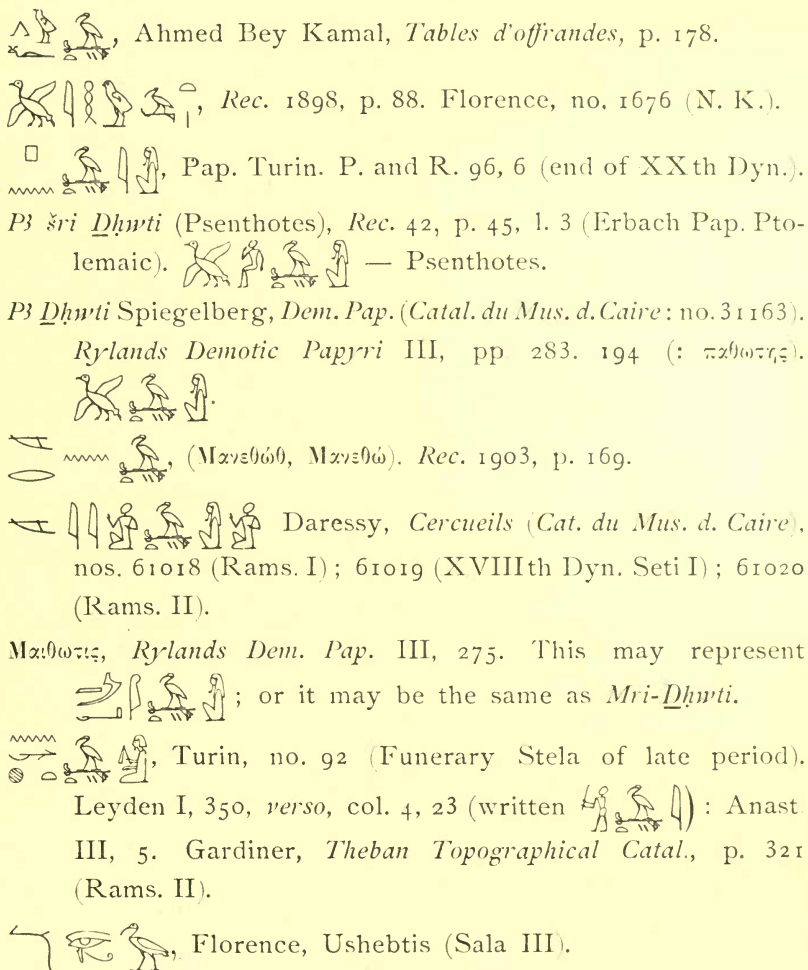 , Ahmed Bey Kamal, Tables d'offrandes, p. 178.
, Rec. 1898, p. 88. Florence, no. 1676 (N. K.).
, Pap. Turin. P. and R. 96, 6 (end of XXth Dyn.).
Pꜣ šri Ḏḥwti (Psenthotes), Rec. 42, p. 45, l. 3 (Erbach Pap. Pto-
lemaic). — Psenthotes.
Pꜣ Ḏḥwti Spiegelberg, Dem. Pap. (Catal. du Mus. d. Caire: no. 31163).
Rylands Demotic Papyri III, pp 283. 194 (: παθωτης).
, (Μανεθώθ, Μανεθώ). Rec. 1903, p. 169.
Daressy, Cercueils (Cat. du Mus. d. Caire,
nos. 61018 (Rams. I); 61019 (XVIIIth Dyn. Seti I); 61020
(Rams. II).
Μαιθωτις, Rylands Dem. Pap. III, 275. This may represent
; or it may be the same as Mri-Ḏḥwti.
, Turin, no. 92 (Funerary Stela of late period).
Leyden I, 350, verso, col. 4, 23 (written ) : Anast
III, 5. Gardiner, Theban Topographical Catal., p. 321
(Rams. II).
, Florence, Ushebtis (Sala III).